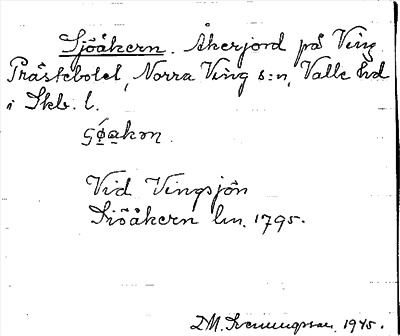 Sjöåkern. Åkerjord på Ving
Prästebolet, Norra Ving s:n, Valle hd
i Skb. l.
Vid Vingsjön
Siöåkern lm. 1795.
D.M. Svenungsson, 1945.